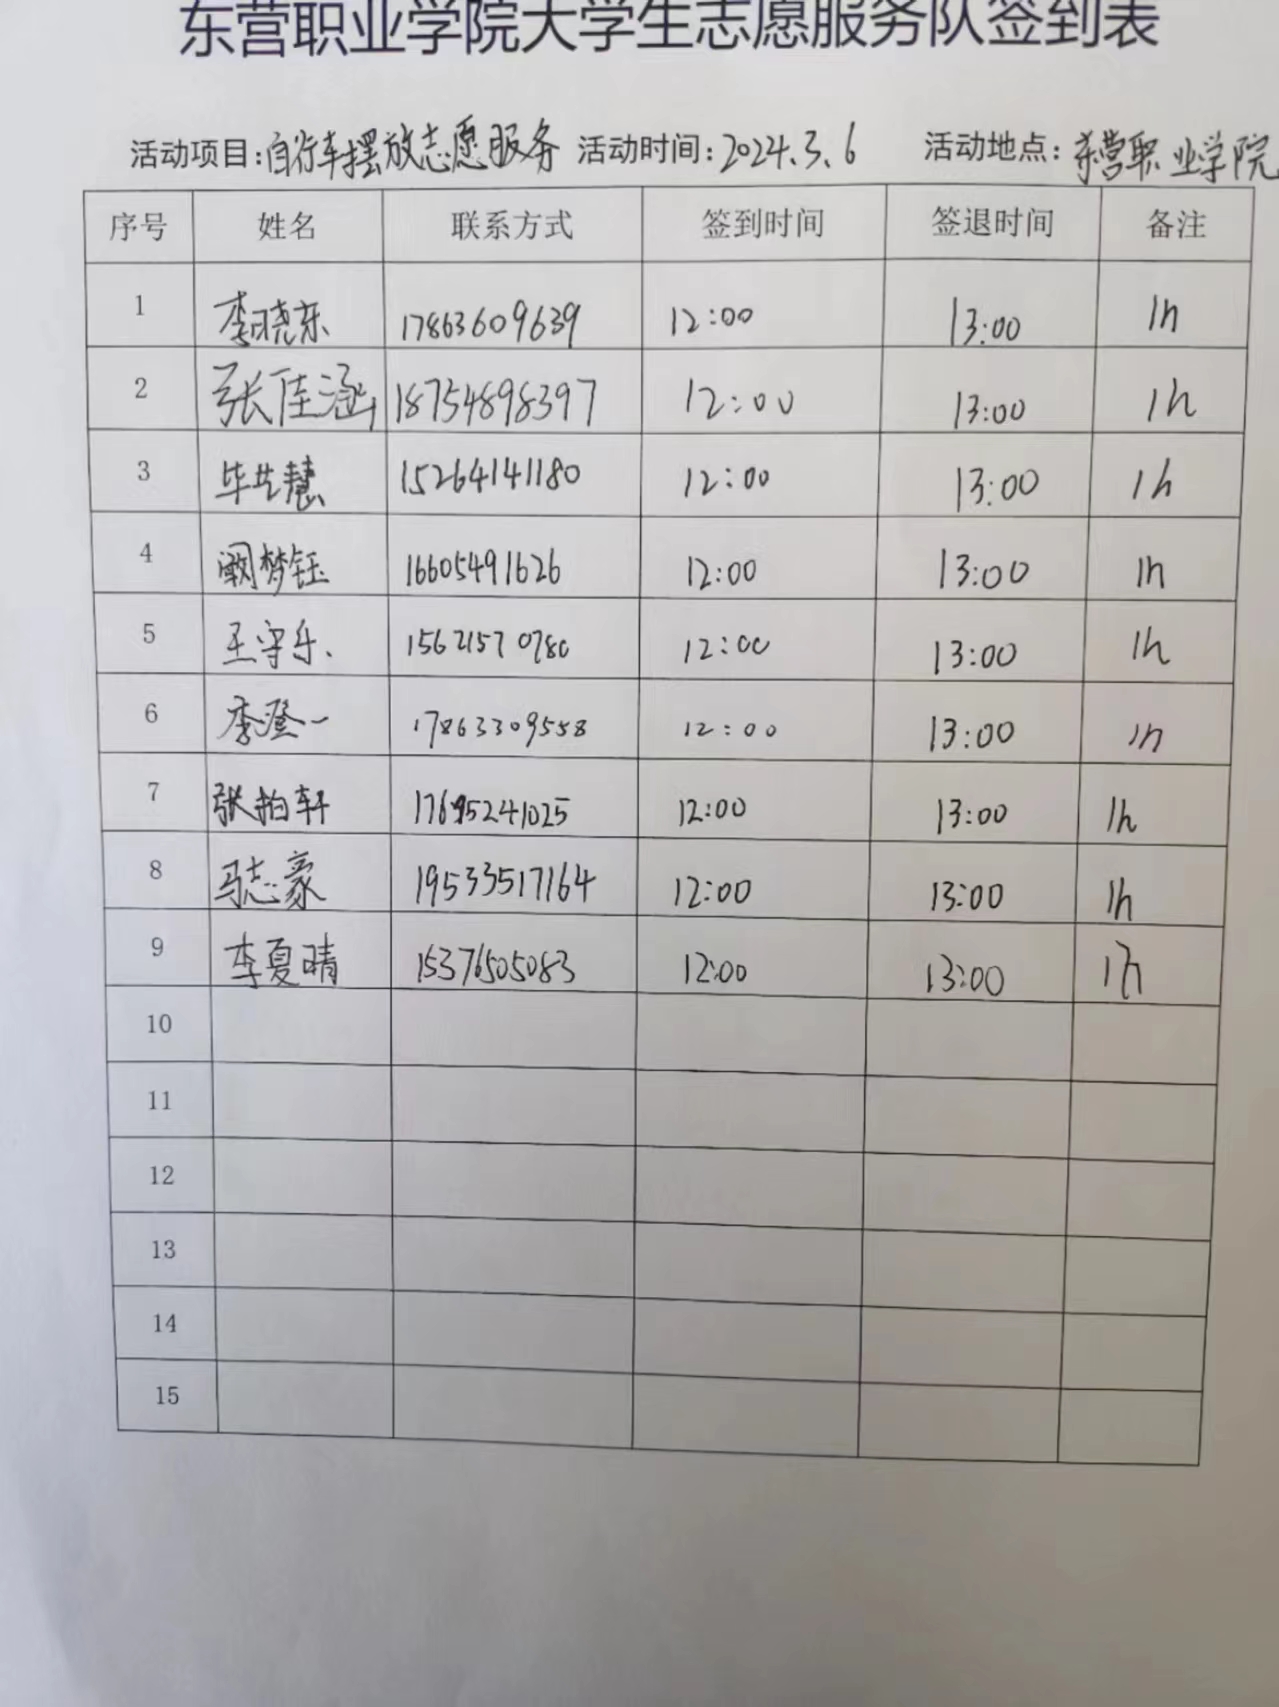 东营职业学院大学生志愿服务队签到表
活动项目:自行车摆放志愿服务 活动时间:2024.3.6 活动地点:东营职业学院
序号 姓名 联系方式 签到时间 签退时间 备注
1 李晓东 17863609639 12:00 13:00 1h
2 张佳涵 18754898397 12:00 13:00 1h
3 毕慧 15264141180 12:00 13:00 1h
4 阚梦钰 16605491626 12:00 13:00 1h
5 王守乐 15621570780 12:00 13:00 1h
6 李澄一 17863309558 12:00 13:00 1h
7 张柏轩 17695241025 12:00 13:00 1h
8 马志豪 19533517164 12:00 13:00 1h
9 李夏晴 15376505083 12:00 13:00 1h
10
11
12
13
14
15